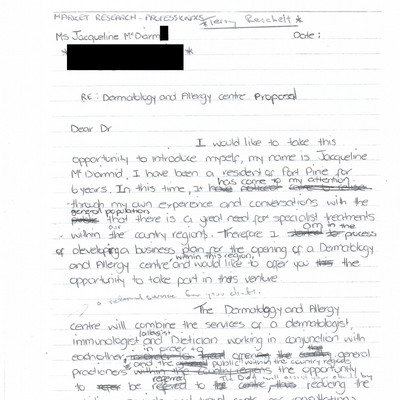 MARKET RESEARCH - PROFESSIONALS * Terry Reschelt *
Ms Jacqueline McDiarm
Date :
*
RE : Dermatology and Allergy centre Proposal
Dear Dr
I would like to take this
opportunity to introduce myself, my name is Jacqueline
McDiarmid, I have been a resident of Port Pirie for
6 years. In this time, it has come to my attention
through my own experience and conversations with the
general population that there is a great need for specialist treatments
within our country region. Therefore I am in the process
of developing a business plan for the opening of a Dermatology
and Allergy centre within this region, and would like to offer you the
opportunity to take part in this venture.
a national service for your clients.
The Dermatology and Allergy
centre will combine the services of a dermatologist,
immunologist/allergist and Dietician working in conjunction with
eachother, in order to give the general
practioners and the public within the country regions the opportunity
to be referred to reducing the